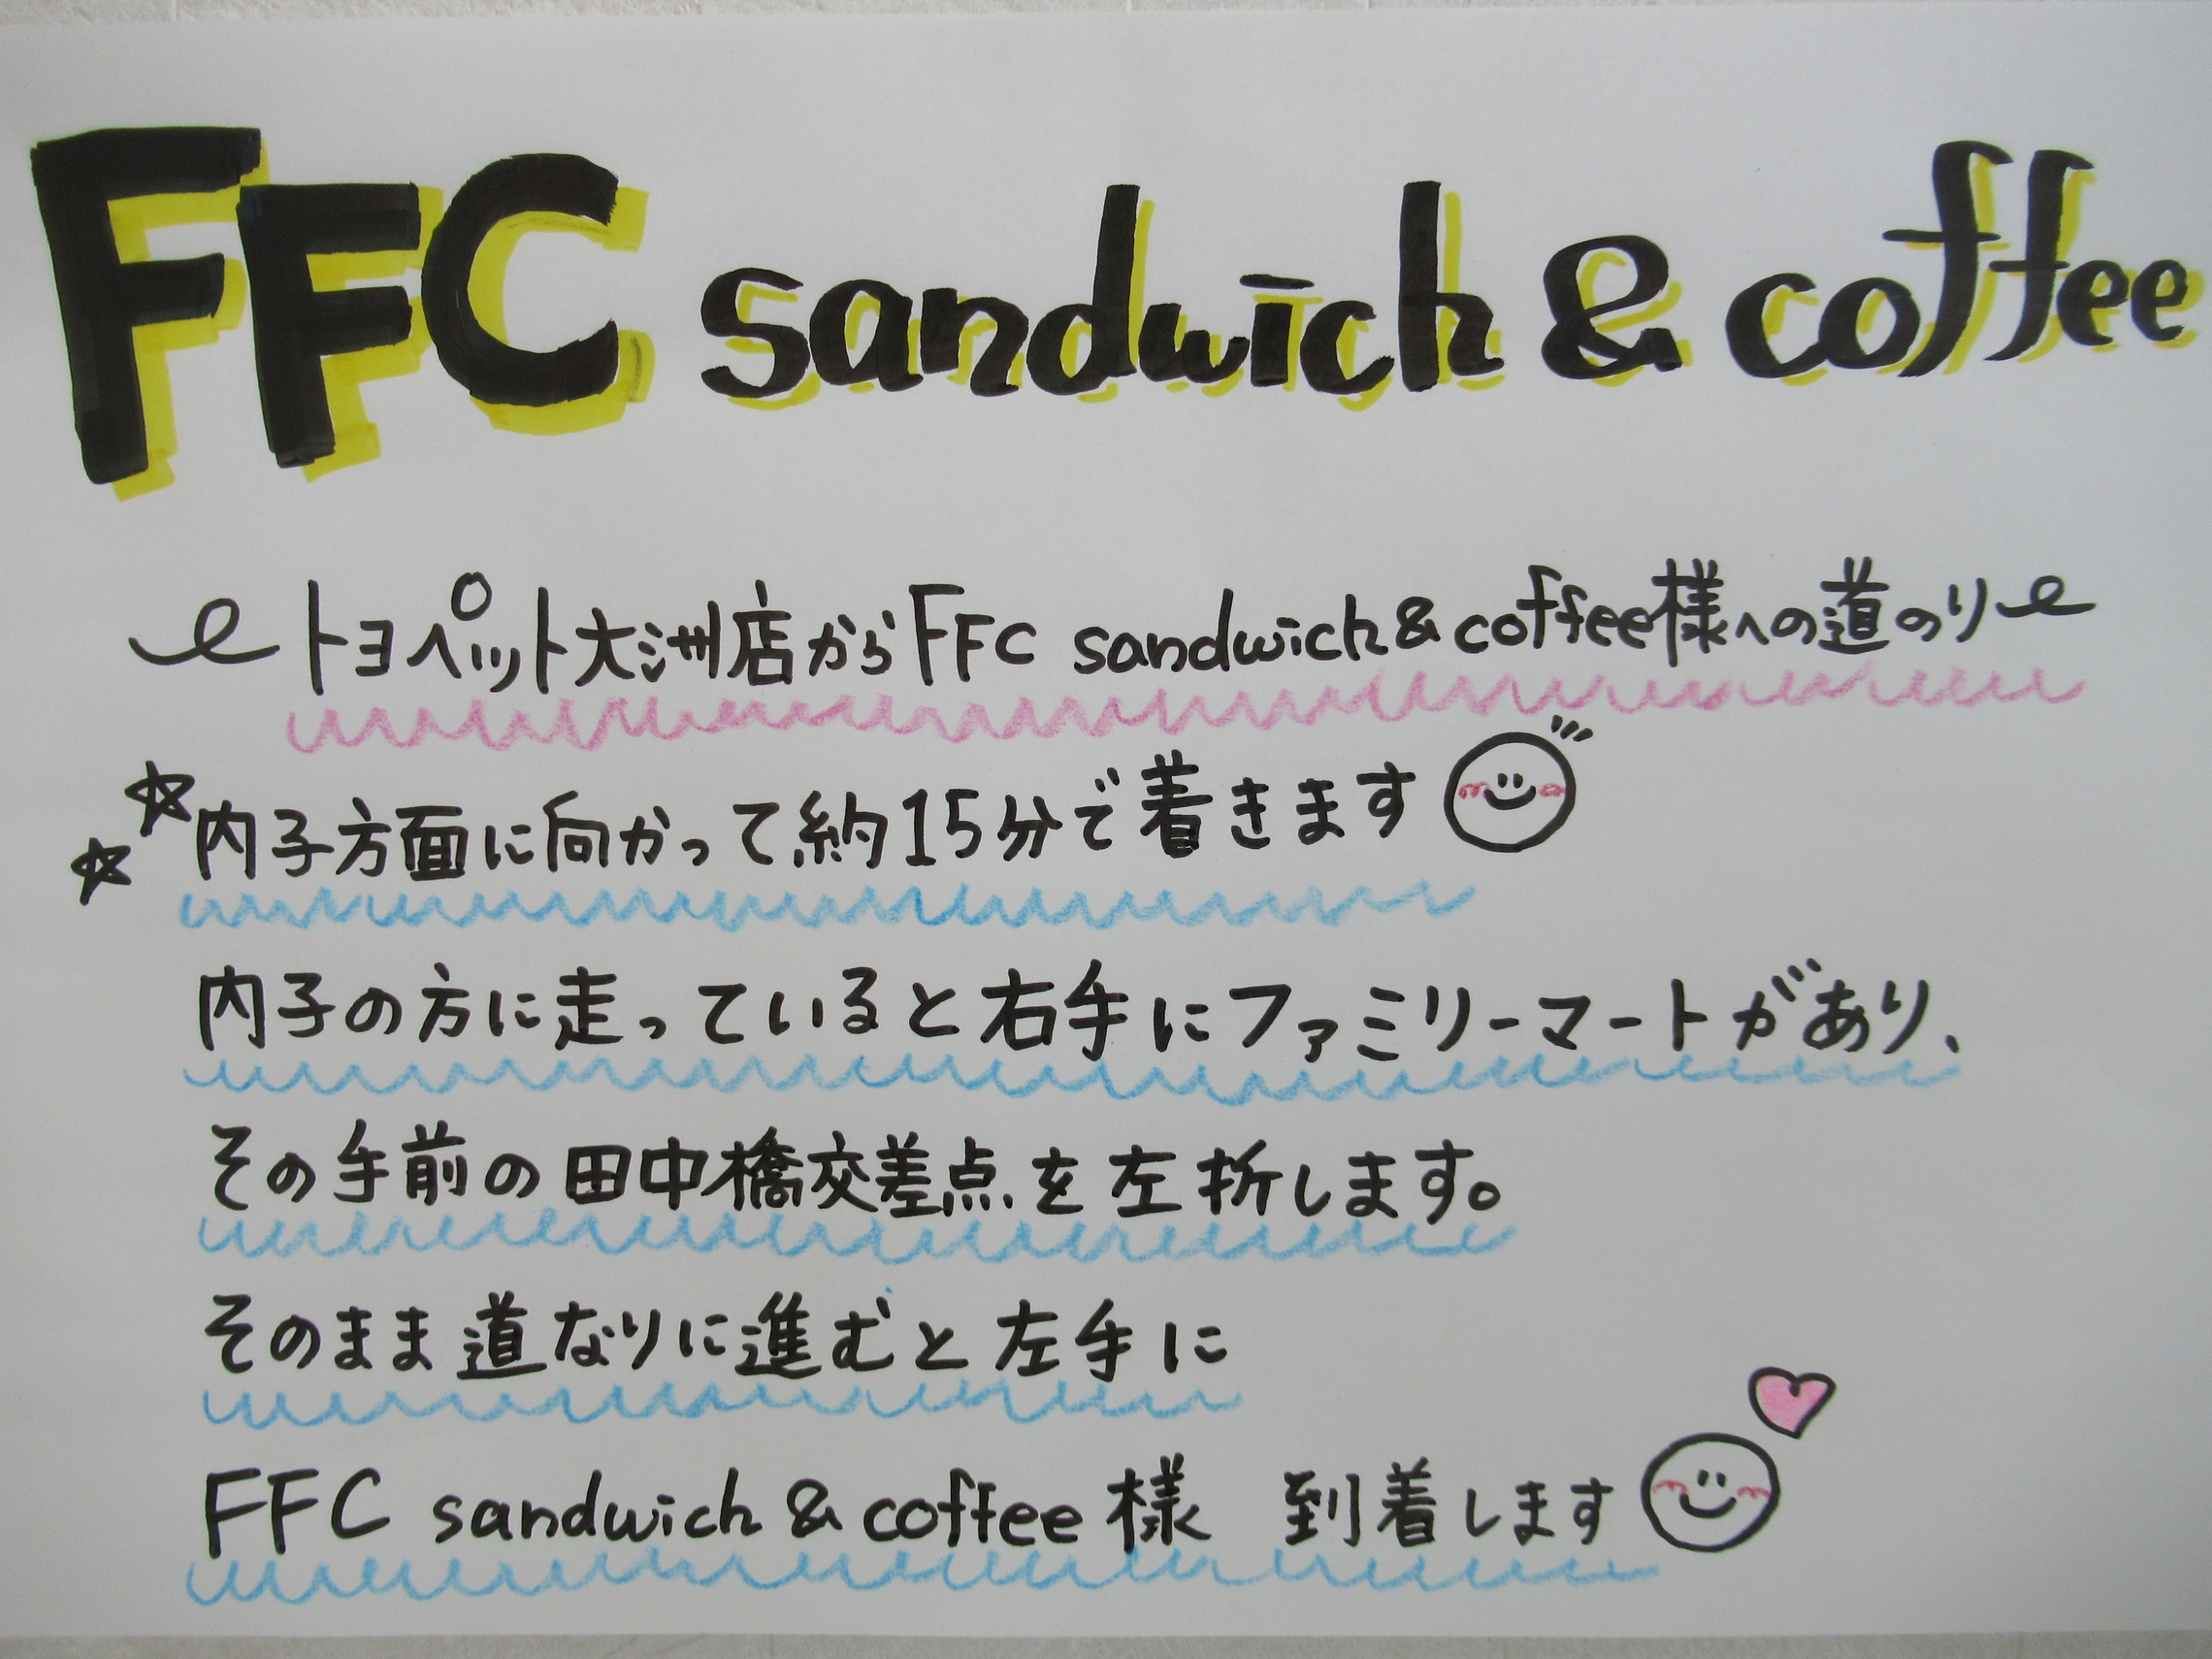 FFC sandwich & coffee
トヨペット大洲店からFFC sandwich & coffee様への道のり
内子方面に向かって約15分で着きます
内子の方に走っていると右手にファミリーマートがあり、
その手前の田中橋交差点を左折します。
そのまま道なりに進むと左手に
FFC sandwich & coffee 様 到着します